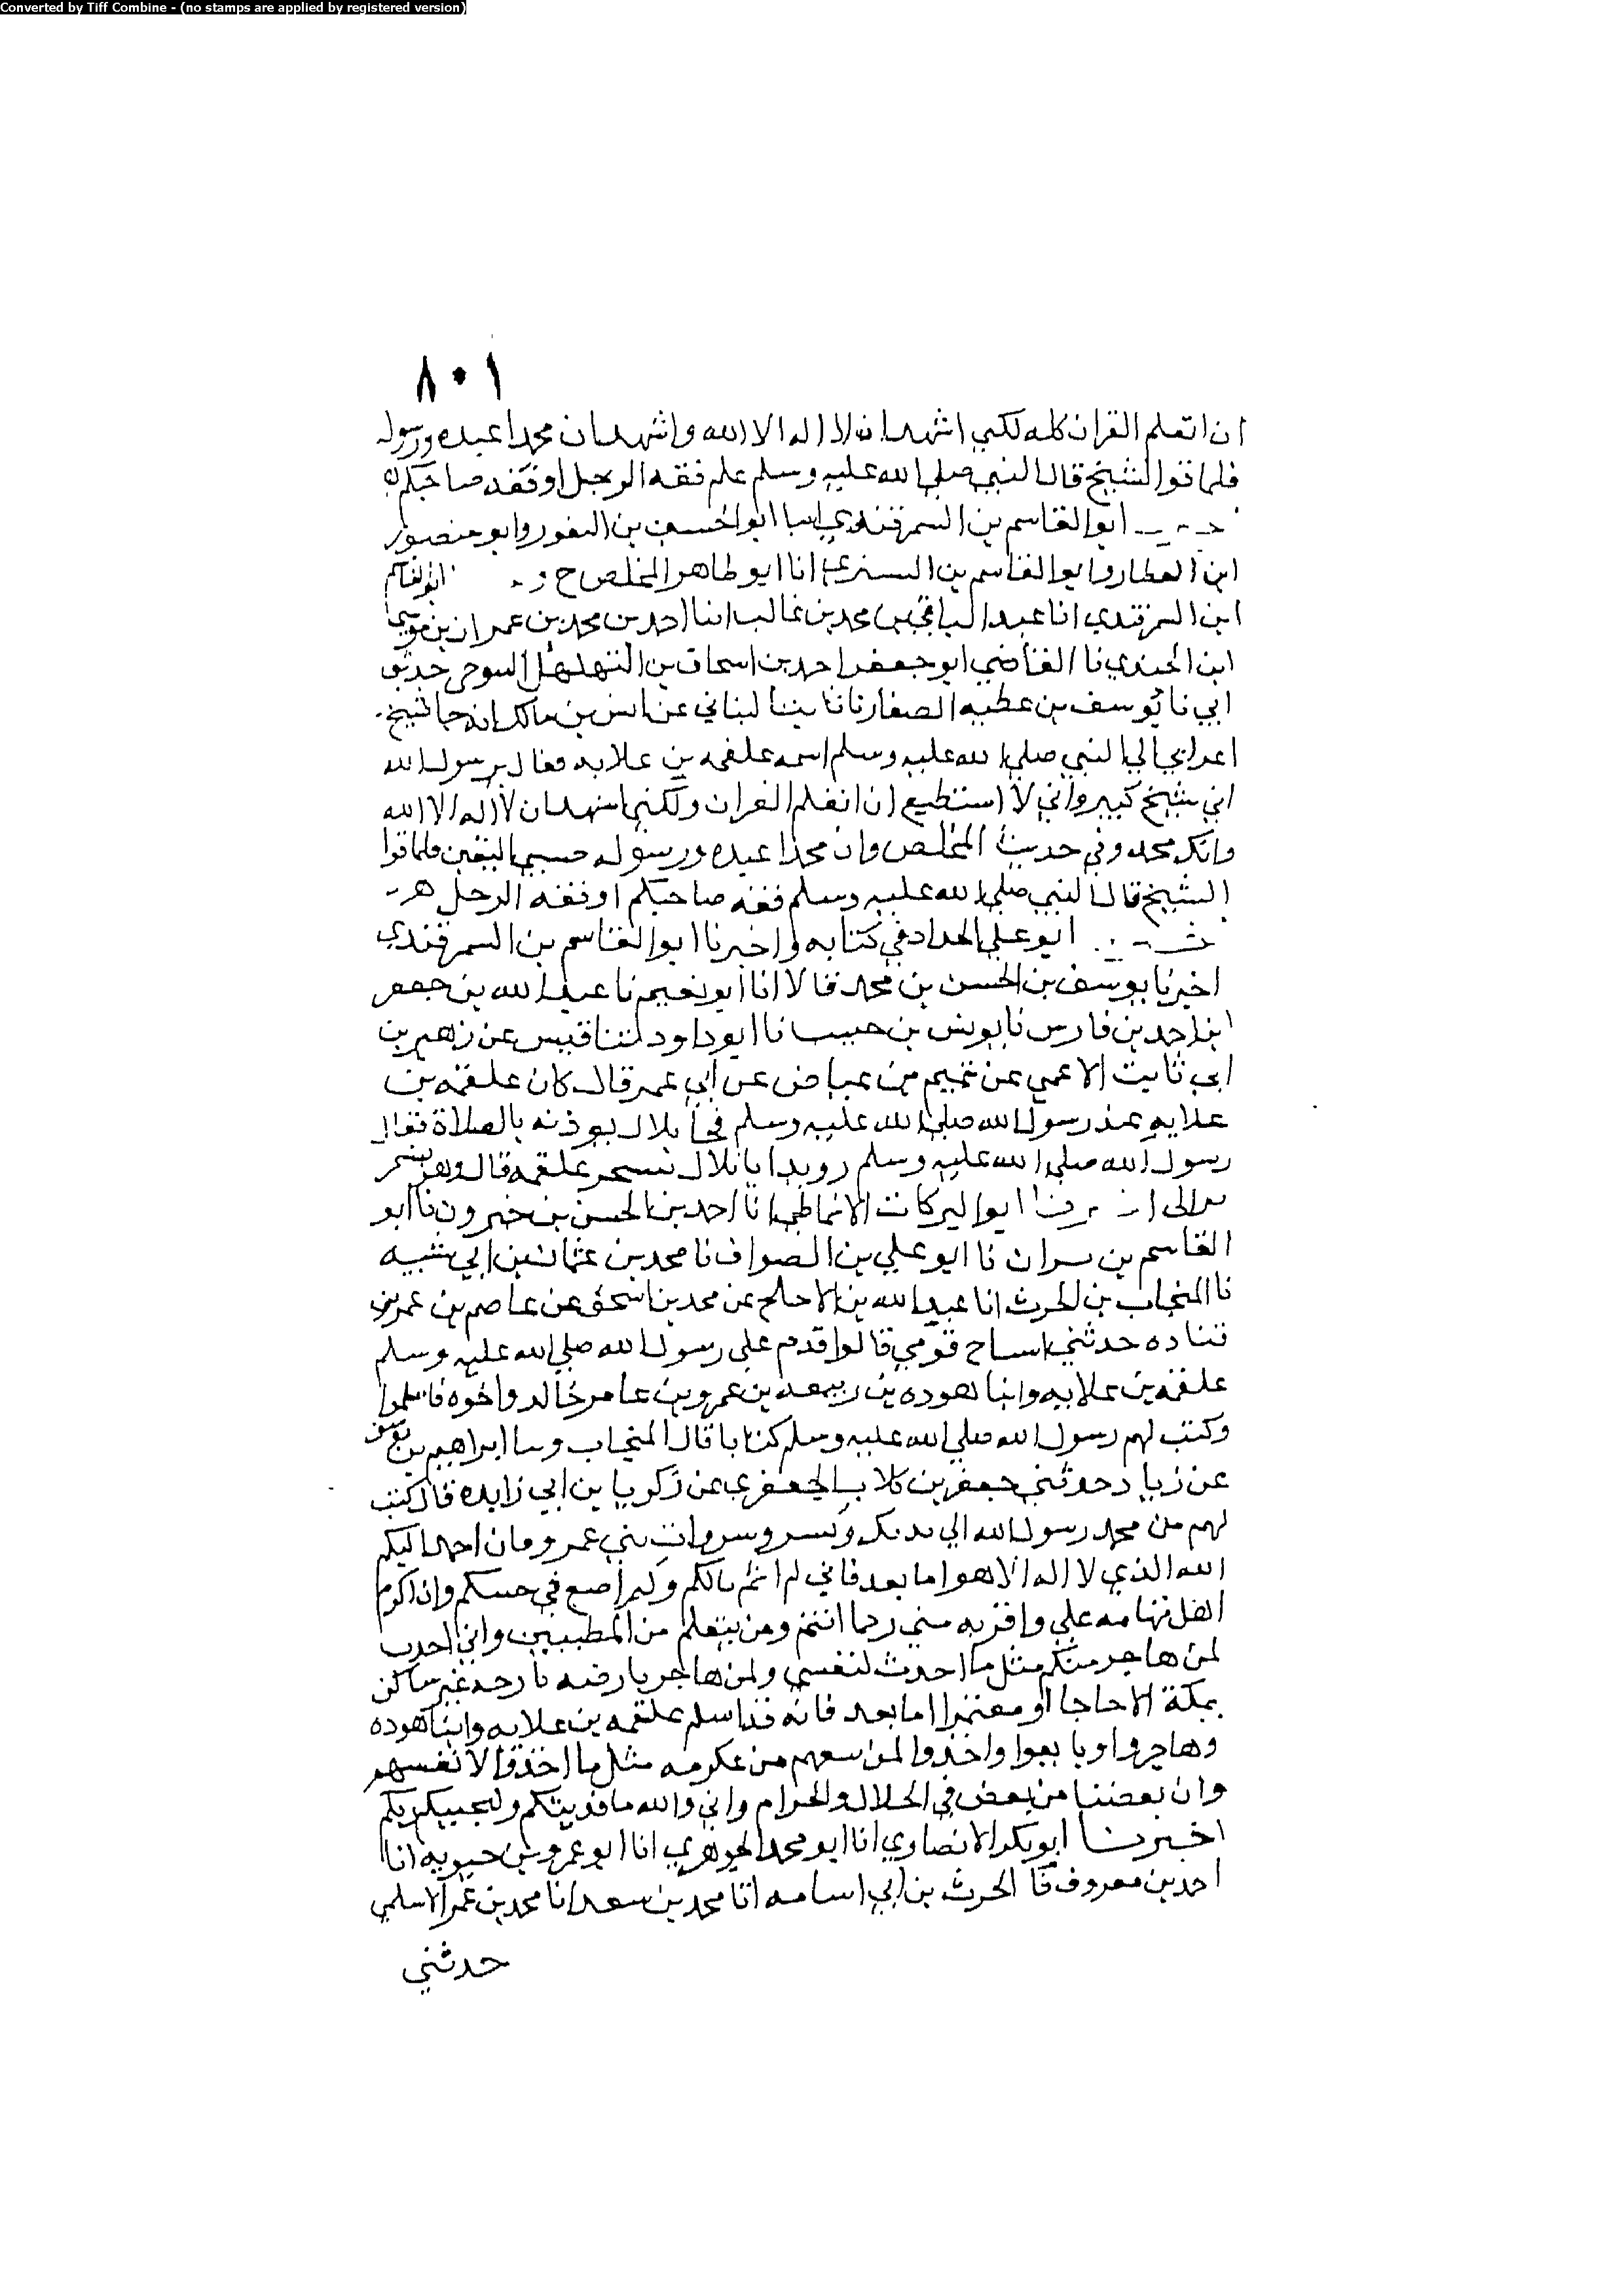 Converted by Tiff Combine - (no stamps are applied by registered version)
٨٠١
ان اتعلم القران كله لكني اشهد ان لا اله الا الله واشهد ان محمدا عبده ورسوله
فلما قفوا الشيخ قال النبي صلى الله عليه وسلم علم فقه الرجل او فقه صاحبكم
ابو القاسم بن السمرقندي انبا ابو الحسين بن النقور وابو منصور
ابن العطار وابو القاسم بن البسري انا ابو طاهر المخلص ح ابو القاسم
ابن السمرقندي انا عبد الباقي بن محمد بن غالب انا احمد بن محمد بن عمران بن موسى
ابن الجندي نا القاضي ابو جعفر احمد بن اسحاق بن البهلول التنوخي حدثني
ابي نا يوسف بن عطيه الصفار نا ثابت البناني عن انس بن مالك انه جا شيخ
اعرابي الي النبي صلى الله عليه وسلم اسمه علقمه بن علاثه فقال يرسول الله
اني شيخ كبير واني لا استطيع ان اتعلم القران ولكني اشهد ان لا اله الا الله
وانك محمد وفي حديث المخلص وان محمدا عبده ورسوله حسبي اليقين فلما قوا
الشيخ قال النبي صلى الله عليه وسلم فقه صاحبكم او فقه الرجل
ابو علي الحداد في كتابه واخبرنا ابو القاسم بن السمرقندي
اخبرنا يوسف بن الحسن بن محمد قالا انا ابو نعيم نا عبد الله بن جعفر
ابن احمد بن فارس نا يونس بن حبيب نا ابو داود ثنا قيس عن زهير بن
ابي ثابت الاعمى عن تميم بن عياض عن ابي عمر قال كان علقمه بن
علاثه عند رسول الله صلى الله عليه وسلم فجا بلال يوذنه بالصلاة فقال
رسول الله صلى الله عليه وسلم رويدا يا بلال يتسحر علقمه قال وهو يتسحر
ابو البركات الانماطي انا احمد بن الحسن بن خيرون نا ابو
القاسم بن بشران نا ابو علي بن الصواف نا محمد بن عثمان بن ابي شيبه
نا المنجاب بن الحرث انا عبد الله بن الاجلح عن محمد بن اسحق عن عاصم بن عمر بن
قتاده حدثني اشياخ قومي قالوا قدم على رسول الله صلى الله عليه وسلم
علقمه بن علاثه وابنا هوده بن ربيعه بن عمرو بن عامر خالد واخوه فاسلموا
وكتب لهم رسول الله صلى الله عليه وسلم كتابا قال المنجاب وسا ابراهيم بن يوسف
عن زياد حدثني جعفر بن كلاب الجعفري عن زكريا بن ابي زايده قال كتب
لهم من محمد رسول الله الي بديل وبسر وسروات بني عمرو فان احمد اليكم
الله الذي لا اله الا هو اما بعد فاني لم اثم بالكم ولم اضع في جنبكم وان اكرم
اهل تهامه علي واقربه مني رحما انتم ومن يتعلم من المطيبين واني احدث
لمن هاجر منكم مثل ما احدث لنفسي ولمن هاجر بارضه بارحه غير ساكن
بمكة الا حاجا او معتمرا اما بعد فانه قد اسلم علقمه بن علاثه وابنا هوده
وهاجروا وبايعوا واخذوا لمن سعهم من عكرمه مثل ما اخذوا لانفسهم
وان بعضنا من بعض في الحلال والحرام واني والله ما كذبتكم وليحييكم ربكم
اخبرنا ابو بكر الانصاري انا ابو محمد الجوهري انا ابو عمرو بن حيويه انا
احمد بن معروف نا الحرث بن ابي اسامه انا محمد بن سعد انا محمد بن عمر الاسلمي
حدثني